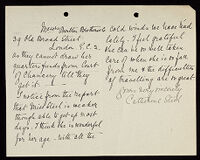 Messrs
39 Old Broad Street
London E.C.2.
as they cannot draw her
quarterly funds from Court
of Chancery till they
get it.
I notice from the report
that Miss Steel is weaker
though able to get up most
days. I think she is wonderful
for her age - with all the
cold winds we have had
lately. I feel grateful
she can be so well taken
care of when she is so far
from me & the difficulties
of travelling are so great
Yours very sincerely
Steel